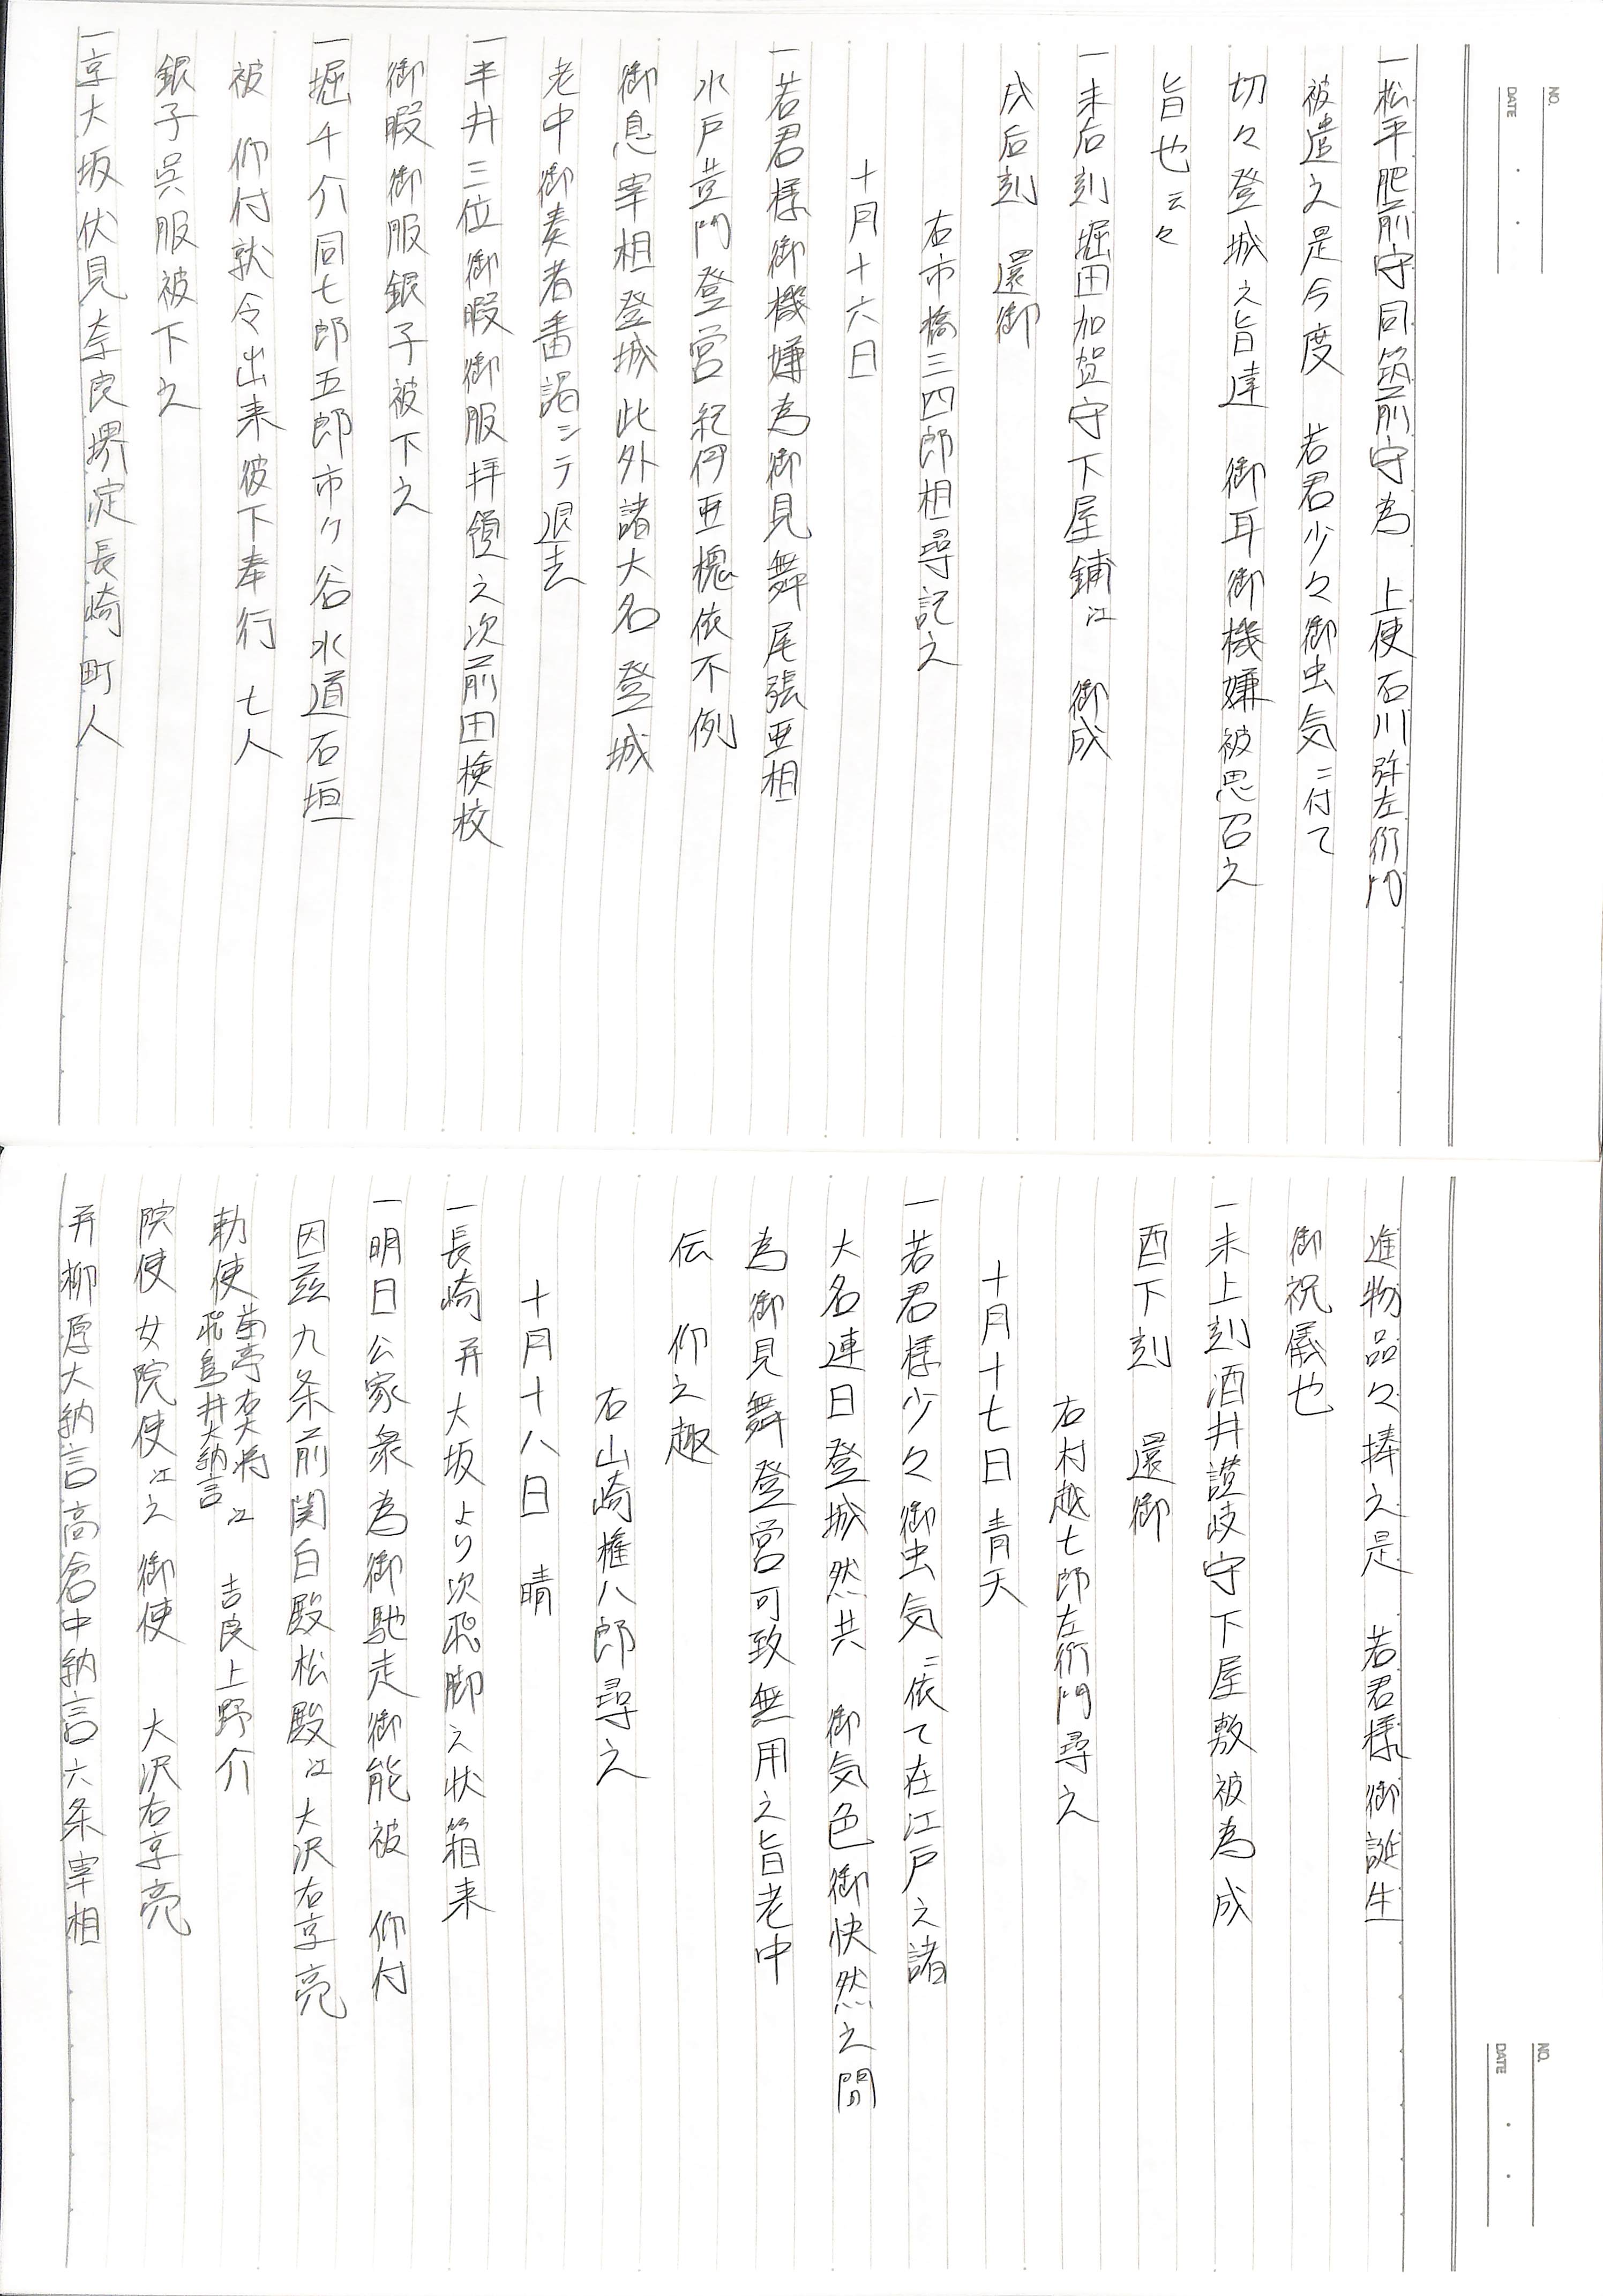 NO.
DATE
一松平肥前守同筑前守為　上使石川弥左衛門
被遣之是今度　若君少々御虫気ニ付て
切々登城之旨達　御耳御機嫌被思召之
旨也云々
一未后刻堀田加賀守下屋鋪江　御成
戌后刻　還御
右市橋三四郎相尋記之
十月十六日
一若君様御機嫌為御見舞尾張亜相
水戸黄門登営紀伊亜槐依不例
御息宰相登城此外諸大名登城
老中御奏者番謁シテ退去
一半井三位御暇御服拝領之次前田検校
御暇御服銀子被下之
一堀千介同七郎五郎市ヶ谷水道石垣
被　仰付就令出来彼下奉行　七人
銀子呉服被下之
一京大坂伏見奈良堺淀長崎町人
NO.
DATE
進物品々捧之是　若君様御誕生
御祝儀也
一未上刻酒井讃岐守下屋敷被為成
酉下刻　還御
右村越七郎左衛門尋之
十月十七日　青天
一若君様少々御虫気ニ依て在江戸之諸
大名連日登城然共　御気色御快然之間
為御見舞登営可致無用之旨老中
伝　仰之趣
右山崎権八郎尋之
十月十八日　晴
一長崎并大坂より次飛脚之状箱来
一明日公家衆為御馳走御能被　仰付
因茲九条前関白殿松殿江大沢右京亮
勅使菊亭右大将飛鳥井大納言江　吉良上野介
院使女院使江之御使　大沢右京亮
并柳原大納言高倉中納言六条宰相